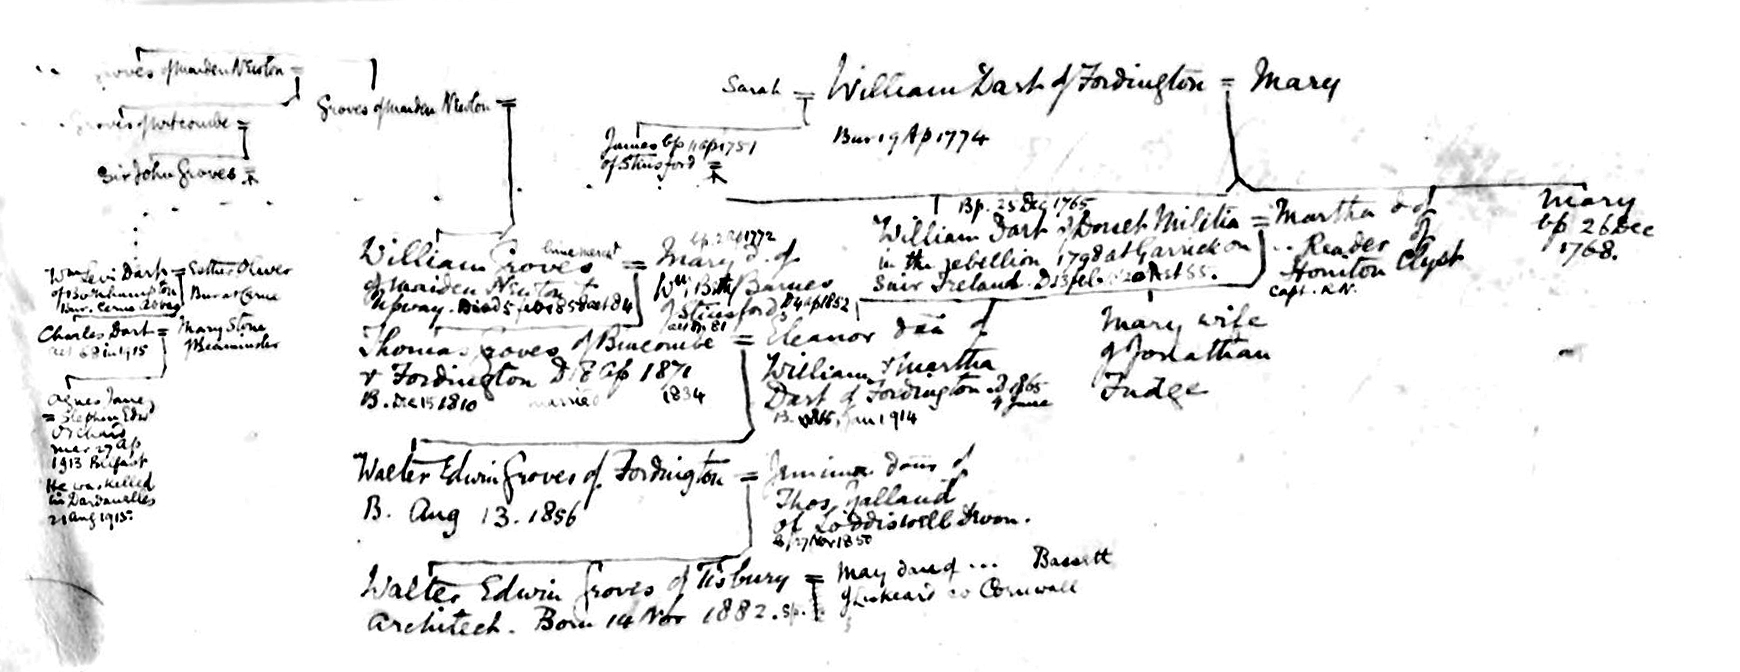 Groves of Maiden Newton =
Groves of Maiden Newton =
Groves of Witcombe =
Sir John Groves
Sarah = William Dart of Fordington = Mary
Bur 19 Ap 1774
James bp 11 Ap 1751
of Stinsford =
Bp. 25 Dec 1765
William Dart of Dorset Militia = Martha d of
in the rebellion 1798 at Garrick on
Suir Ireland. D 13 Feb.
.. Reader of
Honiton Clyst
Capt. R.N.
Mary
bp 26 Dec
1768.
William Groves = Mary d. of
of Maiden Newton &
Upway.
bp. 2 1772
Wm Barnes
Stinsford
D 4 Ap 1852
Thomas Groves of Bincombe = Eleanor dau of
& Fordington D 8 Ap 1871
B. Dec 15 1810 married 1834
William & Martha
Dart of Fordington. D 1865
4 June
B. Jan 1914
Mary wife
of Jonathan
Fudge
Wm Levi Dart = Esther Oliver
of Bothenhampton Bur at Cerne
Bur. Cerne Abbey
Charles Dart = Mary Stone
aet 68 in 1915 of Beaminster
Agnes Jane
= Stephen Edw
Orchard
mar 27 Ap
1913 Belfast
He was killed
in Dardanelles
21 Aug 1915.
Walter Edwin Groves of Fordington = Jemima dau of
B. Aug 13. 1856
Thos. Yalland
of Loddiswell Devon.
27 Nov 1850
Walter Edwin Groves of Tisbury = May dau of ... Bassett
Architect. Born 14 Nov 1882. sp.
of Liskeard Co Cornwall